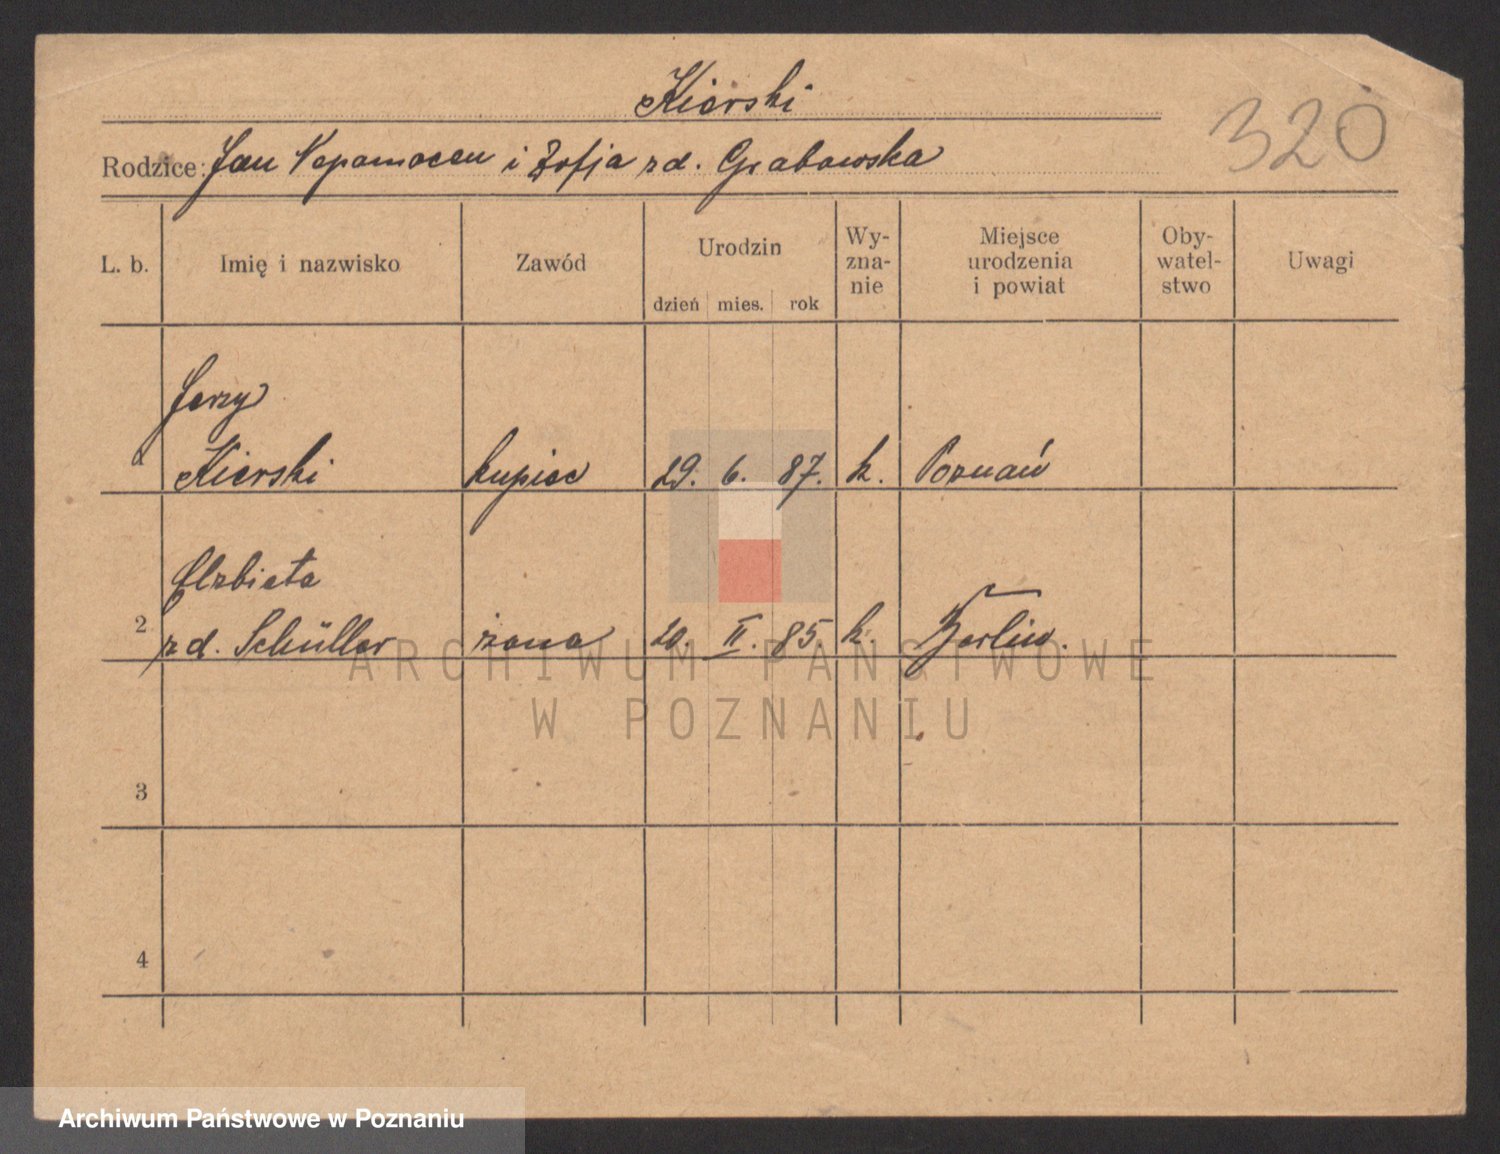 Kierski
320
Rodzice: Jan Nepomocen i Zofja zd. Grabowska
L. b. Imię i nazwisko Zawód Urodzin dzień mies. rok Wy-zna-nie Miejsce urodzenia i powiat Oby-watel-stwo Uwagi
Jerzy
1 Kierski kupiec 29. 6. 87. k. Poznań
Elzbieta
2 zd. Schüller żona 20. II. 85 k. Berlin.
ARCHIWUM PAŃSTWOWE
W POZNANIU
3
4
Archiwum Państwowe w Poznaniu